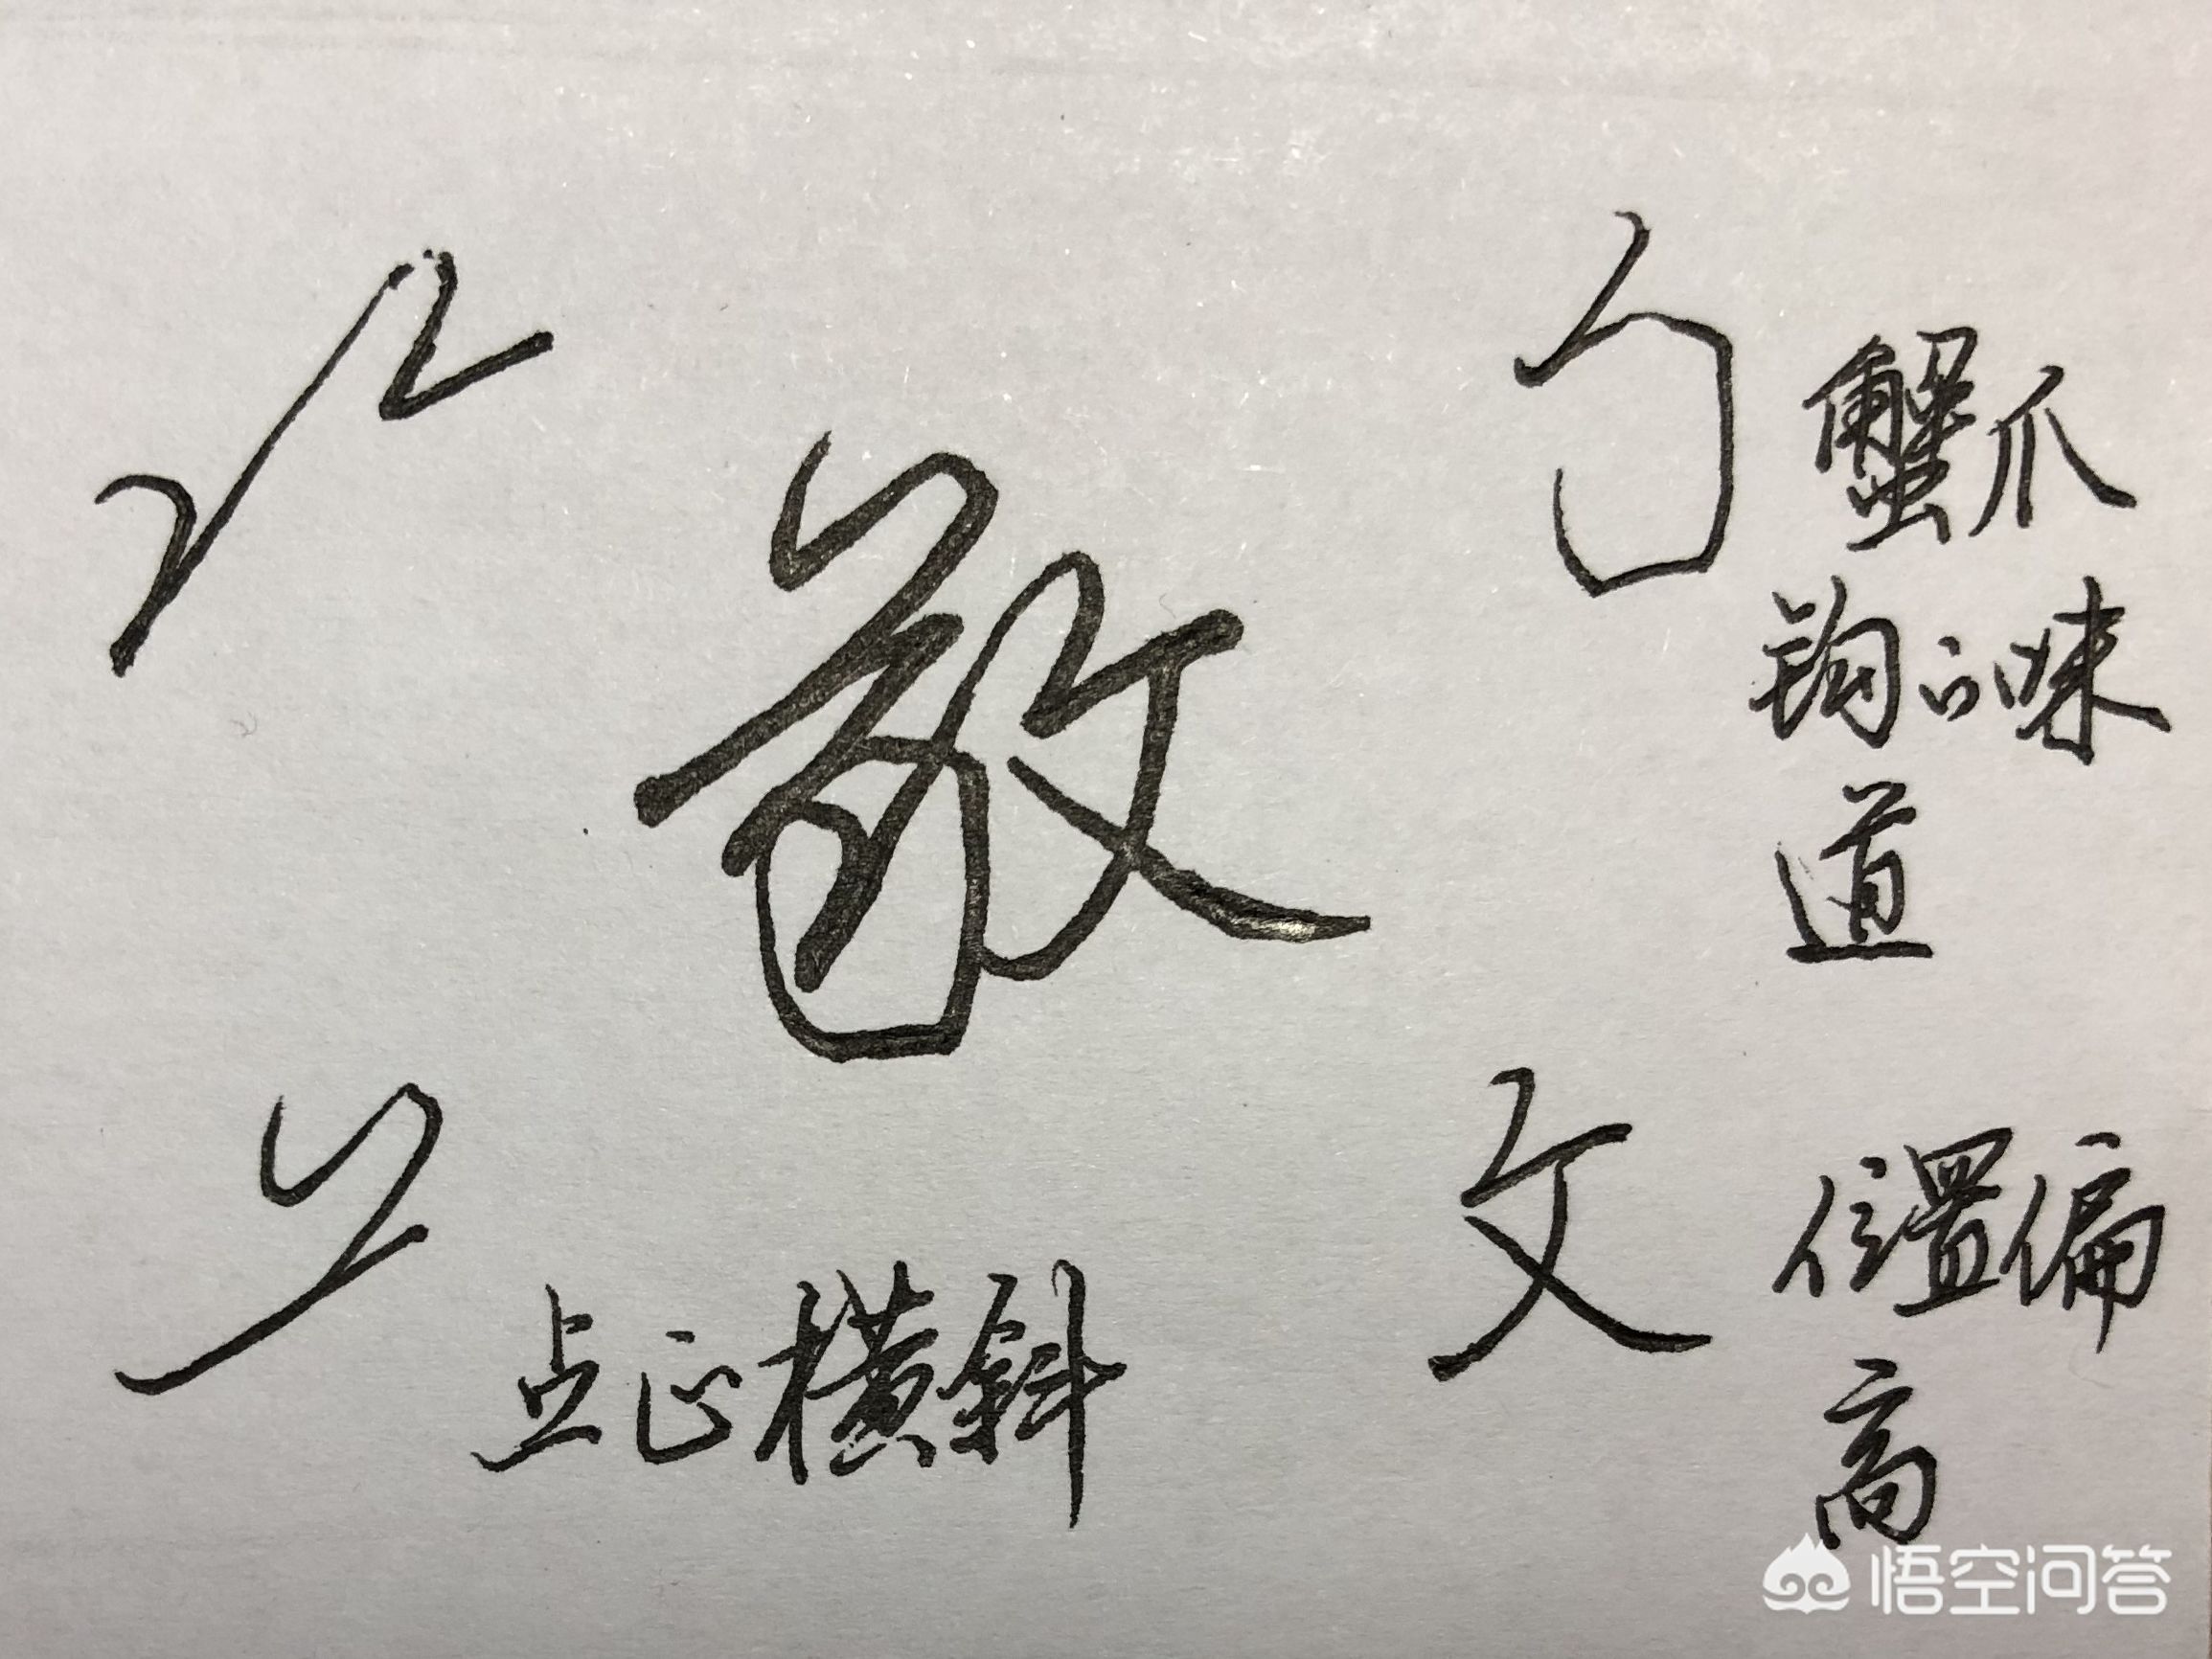 敬
蟹爪
钩的味
道
点正横斜
位置偏
高
悟空问答